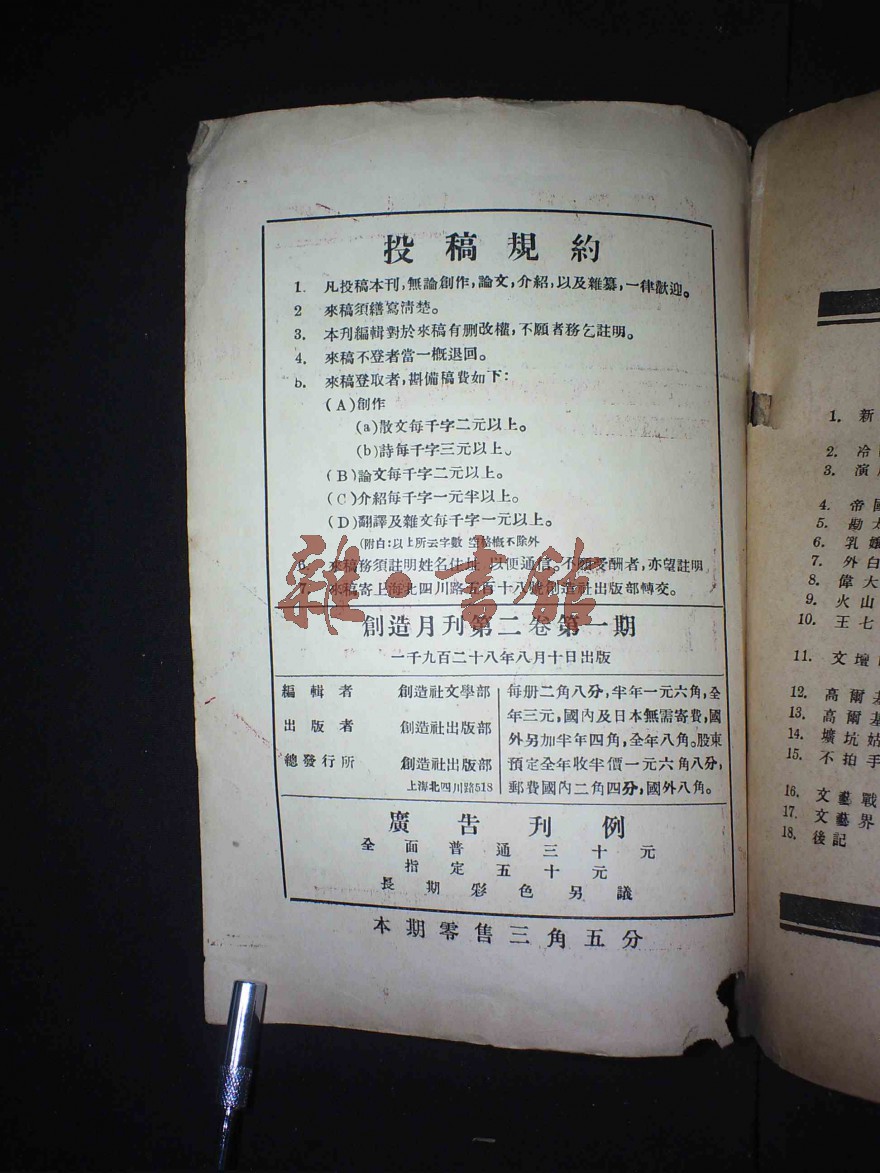 投稿規約
1. 凡投稿本刊,無論創作,論文,介紹,以及雜纂,一律歡迎。
2 來稿須繕寫清楚。
3. 本刊編輯對於來稿有删改權,不願者務乞註明。
4. 來稿不登者當一概退回。
b. 來稿登取者,斟備稿費如下:
(A)創作
(a)散文每千字二元以上。
(b)詩每千字三元以上。
(B)論文每千字二元以上。
(C)介紹每千字一元半以上。
(D)翻譯及雜文每千字一元以上。
(附白:以上所云字數 空格概不除外
6. 來稿務須註明姓名住址 以便通信。不願受酬者,亦望註明
7. 來稿寄上海北四川路五百十八號創造社出版部轉交。
雜·書館
創造月刊第二卷第一期
一千九百二十八年八月十日出版
編輯者 創造社文學部
出版者 創造社出版部
總發行所 創造社出版部
上海北四川路518
每册二角八分,半年一元六角,全
年三元,國內及日本無需寄費,國
外另加半年四角,全年八角。股東
預定全年收半價一元六角八分,
郵費國內二角四分,國外八角。
廣告刊例
全面普通三十元
指定五十元
長期彩色另議
本期零售三角五分
1. 新
2. 冷
3. 演
4. 帝國
5. 勘太
6. 乳孃
7. 外白
8. 偉大
9. 火山
10. 王七
11. 文壇
12. 高爾基
13. 高爾基
14. 壙坑姑
15. 不拍手
16. 文藝戰
17. 文藝界
18. 後記